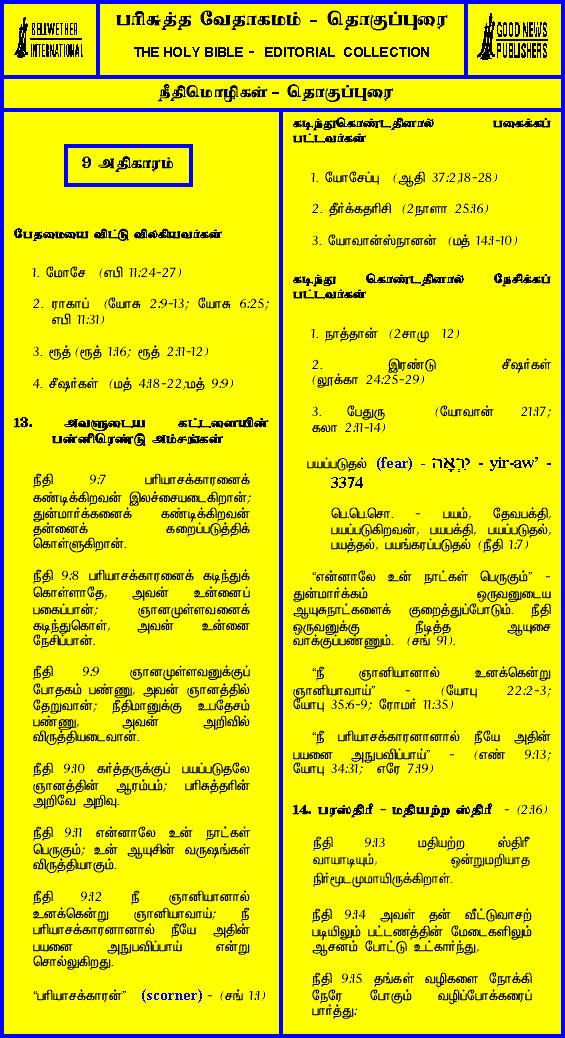 BELLWETHER
INTERNATIONAL
பரிசுத்த வேதாகமம் - தொகுப்புரை
THE HOLY BIBLE - EDITORIAL COLLECTION
GOOD NEWS
PUBLISHERS
நீதிமொழிகள் - தொகுப்புரை
9 அதிகாரம்
பேதமையை விட்டு விலகியவர்கள்
1. மோசே (எபி 11:24-27)
2. ராகாப் (யோசு 2:9-13; யோசு 6:25;
எபி 11:31)
3. ரூத் (ரூத் 1:16; ரூத் 2:11-12)
4. சீஷர்கள் (மத் 4:18-22;மத் 9:9)
13. அவளுடைய கட்டளையின்
பன்னிரெண்டு அம்சங்கள்
நீதி 9:7 பரியாசக்காரனைக்
கண்டிக்கிறவன் இலச்சையடைகிறான்;
துன்மார்க்கனைக் கண்டிக்கிறவன்
தன்னைக் கறைப்படுத்திக்
கொள்ளுகிறான்.
நீதி 9:8 பரியாசக்காரனைக் கடிந்துக்
கொள்ளாதே, அவன் உன்னைப்
பகைப்பான்; ஞானமுள்ளவனைக்
கடிந்துகொள், அவன் உன்னை
நேசிப்பான்.
நீதி 9:9 ஞானமுள்ளவனுக்குப்
போதகம் பண்ணு, அவன் ஞானத்தில்
தேறுவான்; நீதிமானுக்கு உபதேசம்
பண்ணு, அவன் அறிவில்
விருத்தியடைவான்.
நீதி 9:10 கர்த்தருக்குப் பயப்படுதலே
ஞானத்தின் ஆரம்பம்; பரிசுத்தரின்
அறிவே அறிவு.
நீதி 9:11 என்னாலே உன் நாட்கள்
பெருகும்; உன் ஆயுசின் வருஷங்கள்
விருத்தியாகும்.
நீதி 9:12 நீ ஞானியானால்
உனக்கென்று ஞானியாவாய்; நீ
பரியாசக்காரனானால் நீயே அதின்
பயனை அநுபவிப்பாய் என்று
சொல்லுகிறது.
“பரியாசக்காரன்” (scorner) - (சங் 1:1)
கடிந்துகொண்டதினால் பகைக்கப்
பட்டவர்கள்
1. யோசேப்பு (ஆதி 37:2,18-28)
2. தீர்க்கதரிசி (2நாளா 25:16)
3. யோவான்ஸ்நானன் (மத் 14:1-10)
கடிந்து கொண்டதினால் நேசிக்கப்
பட்டவர்கள்
1. நாத்தான் (2சாமு 12)
2. இரண்டு சீஷர்கள்
(லூக்கா 24:25-29)
3. பேதுரு (யோவான் 21:17;
கலா 2:11-14)
பயப்படுதல் (fear) - יִרְאָה - yir-aw’ -
3374
பெ.பெ.சொ. - பயம், தேவபக்தி,
பயப்படுகிறவன், பயபக்தி, பயப்படுதல்,
பயத்தல், பயங்கரப்படுதல் (நீதி 1:7)
“என்னாலே உன் நாட்கள் பெருகும்” -
துன்மார்க்கம் ஒருவனுடைய
ஆயுசுநாட்களைக் குறைத்துப்போடும். நீதி
ஒருவனுக்கு நீடித்த ஆயுசை
வாக்குப்பண்ணும். (சங் 91).
“நீ ஞானியானால் உனக்கென்று
ஞானியாவாய்” - (யோபு 22:2-3;
யோபு 35:6-9; ரோமர் 11:35)
“நீ பரியாசக்காரனானால் நீயே அதின்
பயனை அநுபவிப்பாய்” - (எண் 9:13;
யோபு 34:31; எரே 7:19)
14. பரஸ்திரீ - மதியற்ற ஸ்திரீ - (2:16)
நீதி 9:13 மதியற்ற ஸ்திரீ
வாயாடியும், ஒன்றுமறியாத
நிர்மூடமுமாயிருக்கிறாள்.
நீதி 9:14 அவள் தன் வீட்டுவாசற்
படியிலும் பட்டணத்தின் மேடைகளிலும்
ஆசனம் போட்டு உட்கார்ந்து,
நீதி 9:15 தங்கள் வழிகளை நோக்கி
நேரே போகும் வழிப்போக்கரைப்
பார்த்து: